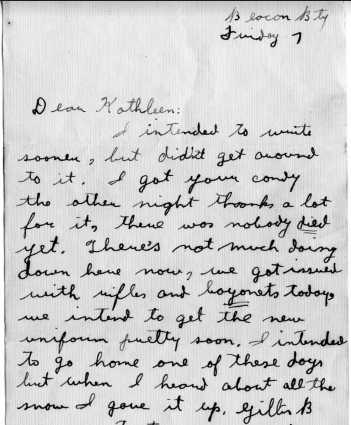 Beacon Bty
Friday 7
Dear Kathleen:
I intended to write
sooner, but didn't get around
to it. I got your candy
the other night thanks a lot
for it, there was nobody died
yet. There's not much doing
down here now, we got issued
with rifles and bayonets today,
we intend to get the new
uniform pretty soon. I intended
to go home one of these days
but when I heard about all the
snow I gave it up. B